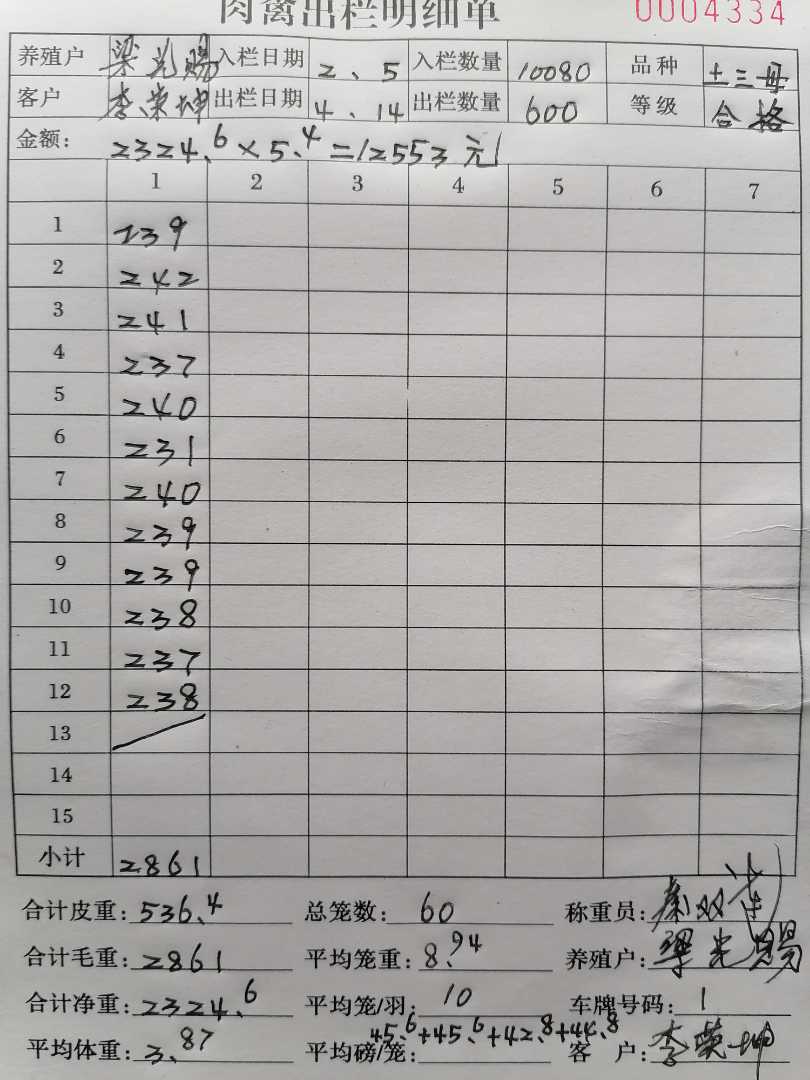 肉禽出栏明细单 0004334
养殖户 梁光赐 入栏日期 2、5 入栏数量 10080 品种 土三母
客户 李荣坤 出栏日期 4、14 出栏数量 600 等级 合格
金额: 2324.6×5.4=12553元
1 2 3 4 5 6 7
1 239
2 242
3 241
4 237
5 240
6 231
7 240
8 239
9 239
10 238
11 237
12 238
13
14
15
小计 2861
合计皮重: 536.4 总笼数: 60 称重员: 秦双
合计毛重: 2861 平均笼重: 8.94 养殖户: 梁光赐
合计净重: 2324.6 平均笼/羽: 10 车牌号码: 1
平均体重: 3.87 平均磅/笼: 45.6+45.6+42.8+44.8 客 户: 李荣坤